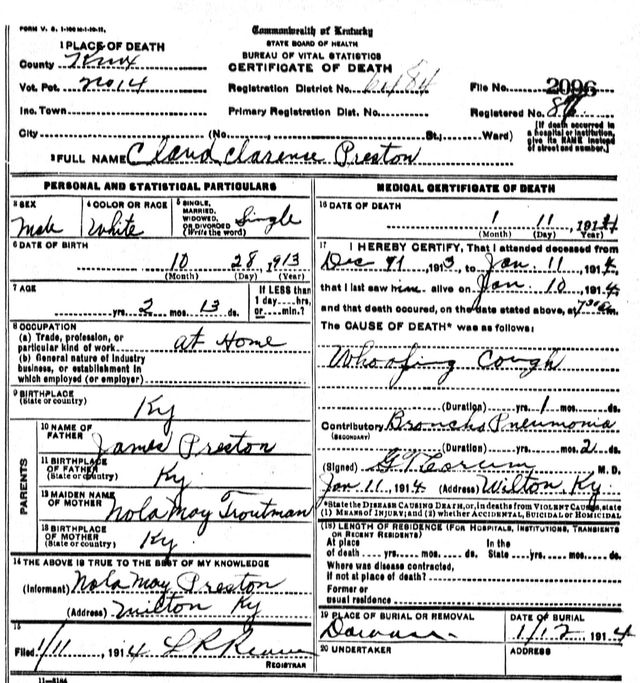 FORM V. S. 1-100 M-1-10-11.
Commonwealth of Kentucky
STATE BOARD OF HEALTH
BUREAU OF VITAL STATISTICS
CERTIFICATE OF DEATH
1 PLACE OF DEATH
County Knox
Vot. Pct. No 14
Registration District No.
File No. 2096
Inc. Town
Primary Registration Dist. No.
Registered No.
City (No., St.; Ward)
[If death occurred in a hospital or institution, give its NAME instead of street and number.]
2 FULL NAME Claud Clarence Preston
PERSONAL AND STATISTICAL PARTICULARS
3 SEX Male
4 COLOR OR RACE White
5 SINGLE, MARRIED, WIDOWED, OR DIVORCED (Write the word) Single
6 DATE OF BIRTH
10 28 1913
(Month) (Day) (Year)
7 AGE
yrs. 2 mos. 13 ds.
If LESS than 1 day....hrs. or....min.?
8 OCCUPATION
(a) Trade, profession, or particular kind of work at Home
(b) General nature of industry business, or establishment in which employed (or employer)
9 BIRTHPLACE
(State or country) Ky
PARENTS
10 NAME OF FATHER James Preston
11 BIRTHPLACE OF FATHER (State or country) Ky.
12 MAIDEN NAME OF MOTHER Nola May Troutman
13 BIRTHPLACE OF MOTHER (State or country) Ky.
14 THE ABOVE IS TRUE TO THE BEST OF MY KNOWLEDGE
(Informant) Nola May Preston
(Address) Wilton Ky
15
Filed 1/11, 1914
REGISTRAR
11-3184
MEDICAL CERTIFICATE OF DEATH
16 DATE OF DEATH
1 11 191
(Month) (Day) (Year)
17 I HEREBY CERTIFY, That I attended deceased from
Dec 1913, to Jan. 11 1914,
that I last saw him alive on Jan 10 1914
and that death occured, on the date stated above, at 730 am.
The CAUSE OF DEATH* was as follows:
Whooping Cough
(Duration) yrs. 1 mos. ds.
Contributory Broncho Pneumonia
(SECONDARY)
(Duration) yrs. mos. 2 ds.
(Signed) M. D.
Jan 11, 1914 (Address) Wilton Ky.
*State the DISEASE CAUSING DEATH, or, in deaths from VIOLENT CAUSES, state
(1) MEANS OF INJURY; and (2) whether ACCIDENTAL, SUICIDAL or HOMICIDAL
(18) LENGTH OF RESIDENCE (FOR HOSPITALS, INSTITUTIONS, TRANSIENTS
OR RECENT RESIDENTS)
At place of death yrs. mos. ds.
In the State yrs. mos. ds.
Where was disease contracted,
if not at place of death?
Former or
usual residence
19 PLACE OF BURIAL OR REMOVAL
DATE OF BURIAL
1/12 1914
20 UNDERTAKER
ADDRESS